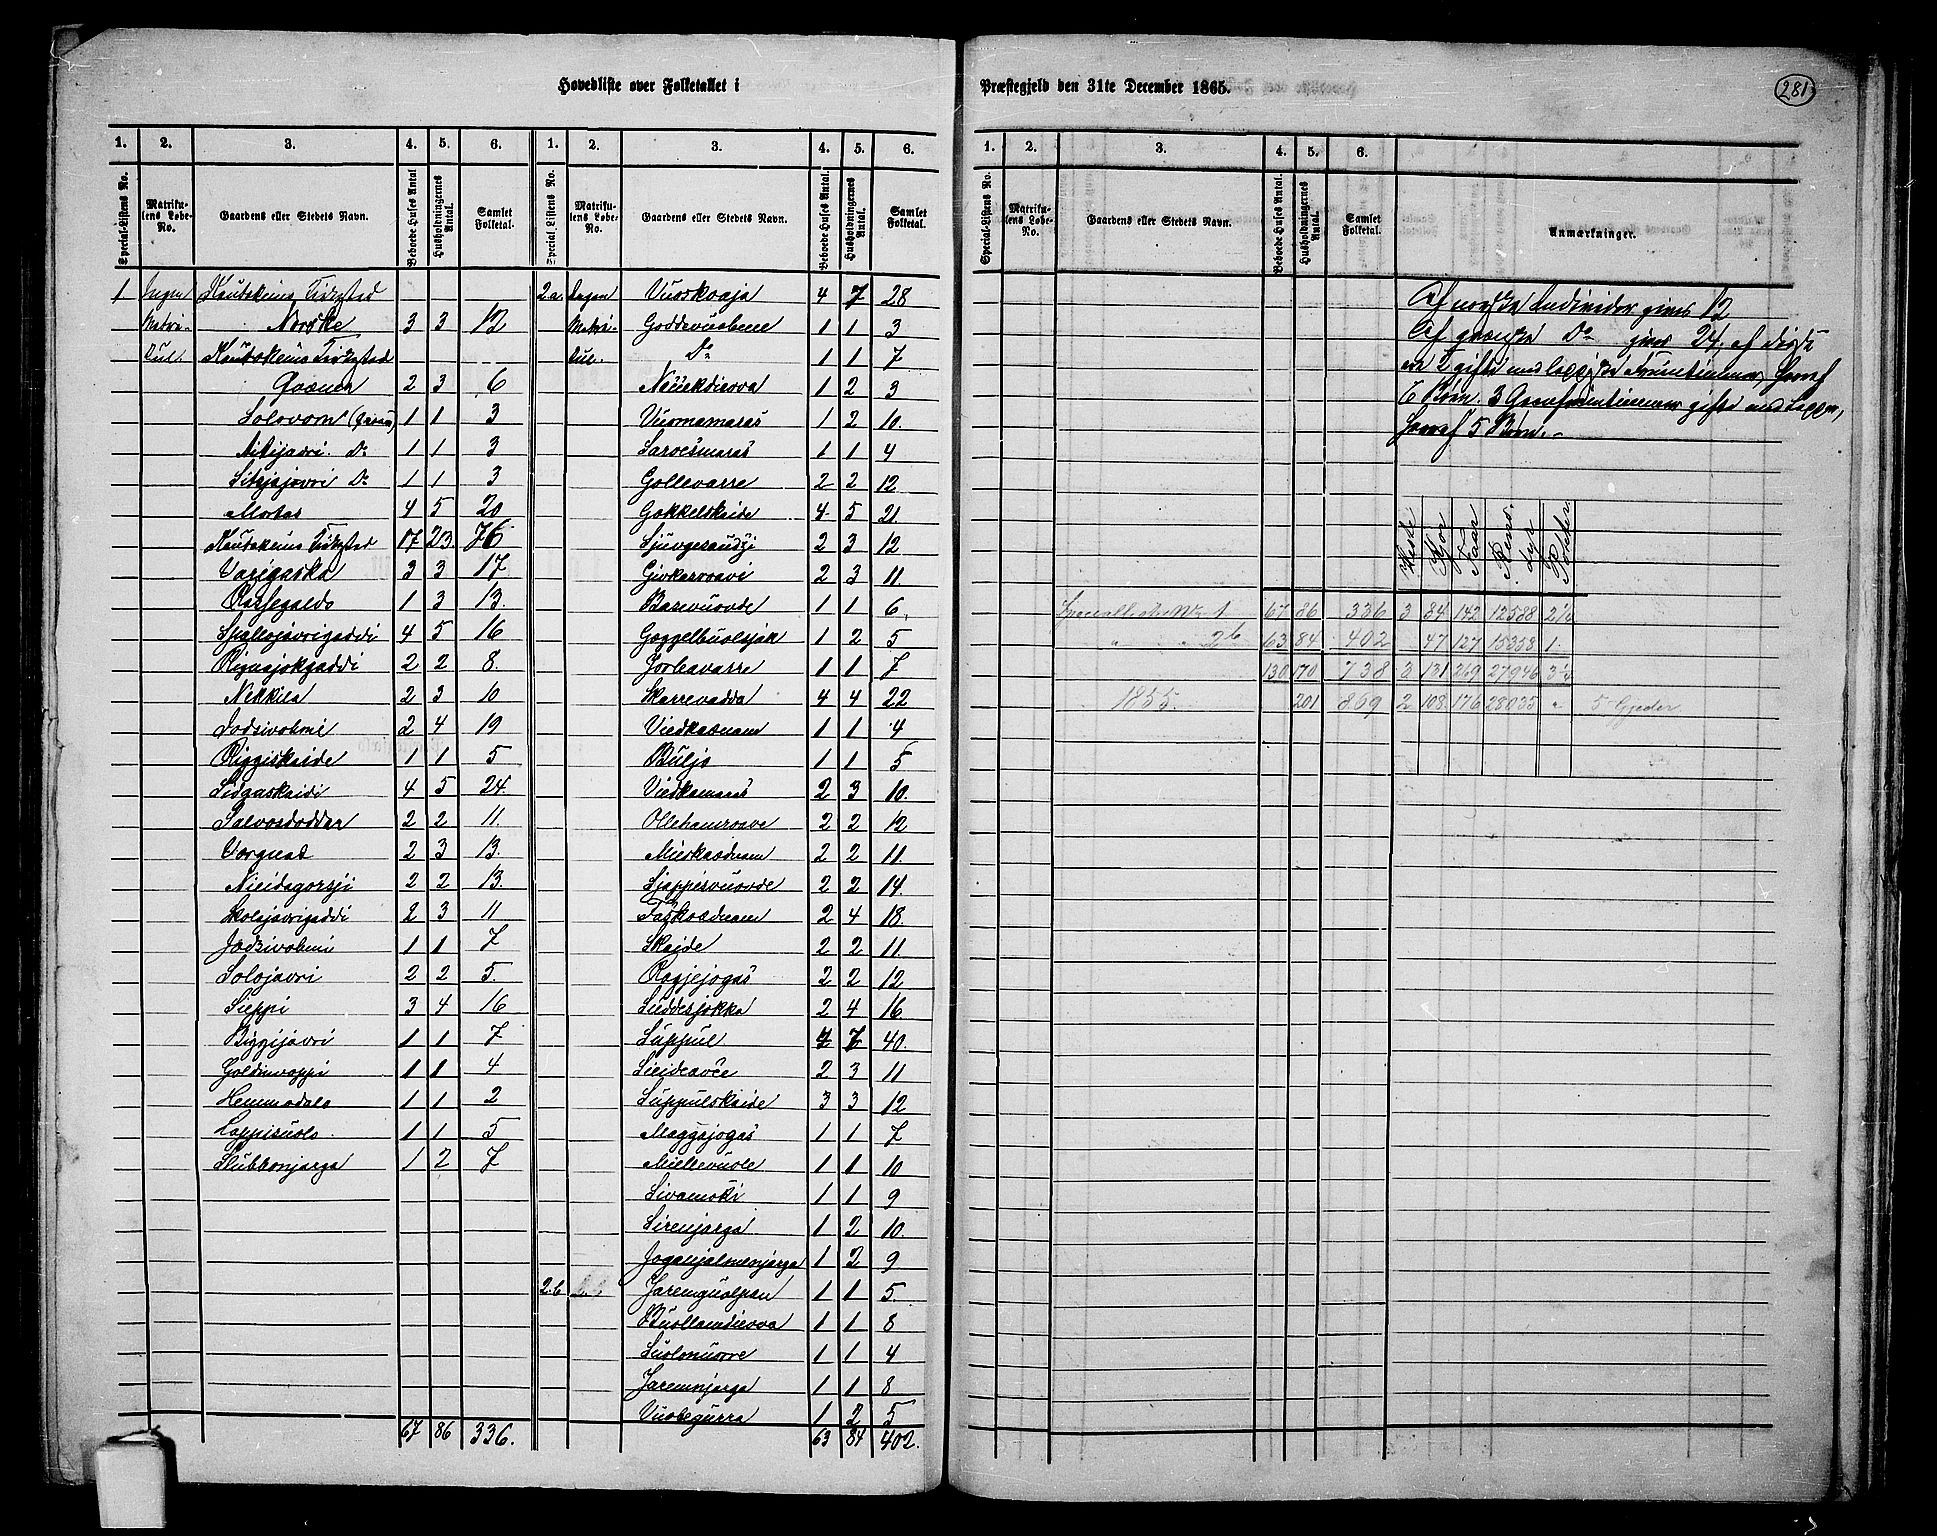 Hovedliste over Folketallet i Præstegjeld den 31te December 1865.
281
1. 2. 3. 4. 5. 6. 1. 2. 3. 4. 5. 6.
Special-Listens No. Matrikulens Løbe-No. Gaardens eller Stedets Navn. Beboede Huses Antal Husholdningernes Antal. Samlet Folketal. Special-Listens No. Matrikulens Løbe-No. Gaardens eller Stedets Navn. Beboede Huses Antal. Husholdningernes Antal. Samlet Folketal.
1 Ingen Kautokeino Kirkested
Matri- Norske 3 3 12
kul. Kautokeino Kirkested
Qvæner 2 3 6
Solovom (Qvæn) 1 1 3
Akijavri Do 1 1 3
Sitjsjavri Do 1 1 3
Mortas 4 5 20
Kautokeino Kirkested 17 23. 76
Varigaska 3 3 17
Rassegaldo 1 3 13.
Spallojavrigaddi 4 5 16
Rignajokgaddi 2 2 8.
Nekkila 2 3 10
Jodsivobmi 2 4 19
Riggiskaide 1 1 5
Sidgaskaidi 4 5 24.
Salvosdoddar 2 2 11.
Vorgneat 2 3 13.
Nieidagorsji 2 2 13.
Skolojavrigaddi 2 3 11
Jodsivobmi 1 1 7
Solojavri 2 2 5.
Sieppi 3 4 16
Biggijavri 1 1 7
Goldinvappi 1 1 4
Hemmodalo 1 1 2
Lappisuolo. 1 1 5
Slubbonjarga 1 2 7
67 86 336.
2.a Ingen Vuoskoaja 4 7 28
Matri- Goddevuobme 1 1 3
kul. Do 1 1 7
Neiekdievva 1 2 3
Vuomamaras 1 2 10.
Saroesmaras 1 1 4
Gollevarre 2 2 12
Gokkelskaide 4 5 21.
Sjuvgeraudzi 2 3 12
Givkaroaavi 2 3 11.
Basevuovde 1 1 6.
Goggelbuolsjak 1 2 5
Gorbavarre 1 1 7
Skarrevadda 4 4 22
Viedkaænam 1 1 4
Buljo 1 1 5
Viedkamaras 2 3 10.
Ollehamroave 2 2 12
Mieskasænam 2 2 11.
Sjappisvuovde 2 2 14.
Taskoædnam 2 4 18.
Skaide 2 2 11.
Ragjejogas 2 2 12
Sieddesjokka 2 4 16
Suppul 7 7 40.
Sieideavce 2 3 11
Suppulskaide 3 3 12
Maggajogas 1 1 7
Mielkevuole 1 1 10
Sivamoki 1 1 9
Sirenjarga 1 2 10.
Joganjalmenjarga 1 2 9
2.b Jaremguolpan 1 1 5.
Buollamdievva 1 1 8
Suolonuorre 1 1 4
Jaremnjarga 1 1 8
Vuolegurra 1 2 5
63 84 402.
1. 2. 3. 4. 5. 6.
Special-Listens No. Matrikulens Løbe-No. Gaardens eller Stedets Navn. Beboede Huses Antal. Husholdningernes Antal. Samlet Folketal. Anmærkninger.
Af norske Individer gives 12
Af qvænske Do gives 24, af disse
er 2 gifte med lappiske Fruentimmer, hvoraf
6 Børn. 3 Qvænfruentimmer gifte med Lapper,
hvoraf 5 Børn.
Heste Kjør Faar Rensd. Byg Poteter
Specialliste No 1 67 86 336 3 84 142 12588 2½
" " 2b 63 84 402 47 127 15358 1.
130 170 738 3 131 269 27946 3½
1855. 201 869 2 108 176 28035 " 5 Gjeder